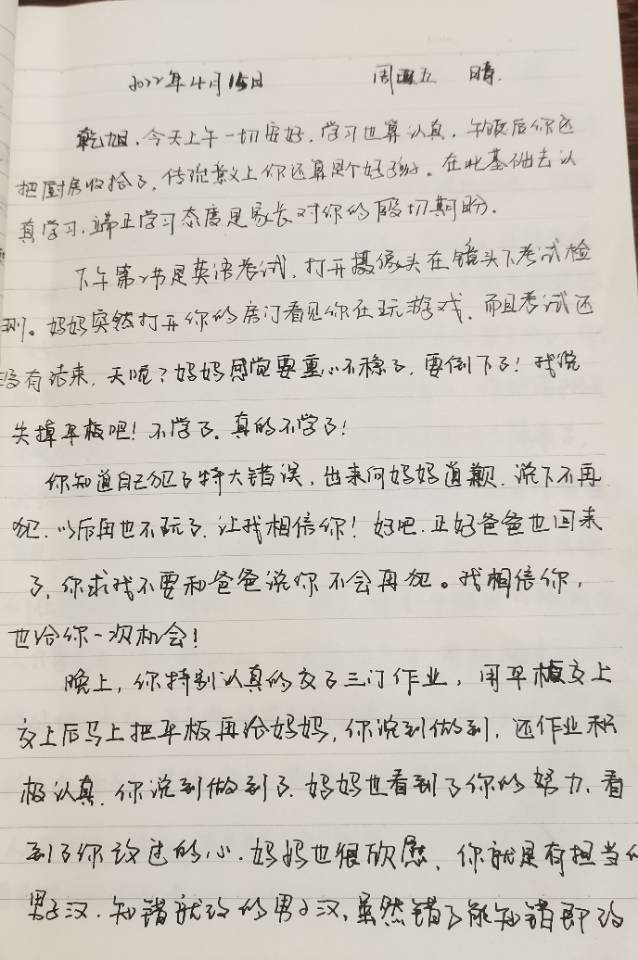 2022年4月15日 周五 晴.
乾旭,今天上午一切安好,学习也算认真,午饭后你还
把厨房收拾了,传统意义上你还算是个好孩子。在此基础去认
真学习,端正学习态度是家长对你的殷切期盼.
下午第2节是英语考试,打开摄像头在镜头下考试检
测。妈妈突然打开你的房门看见你在玩游戏,而且考试还
没有结束,天呢?妈妈感觉要重心不稳了,要倒下了!我说
失掉平板吧!不学了,真的不学了!
你知道自己犯了特大错误,出来向妈妈道歉,说下不再
犯,以后再也不玩了,让我相信你!好吧,正好爸爸也回来
了,你求我不要和爸爸说你不会再犯。我相信你,
也给你一次机会!
晚上,你特别认真的交了三门作业,用平板交上
交上后马上把平板再给妈妈,你说到做到,还作业积
极认真,你说到做到了,妈妈也看到了你的努力,看
到了你改过的心.妈妈也很欣慰,你就是有担当的
男子汉.知错就改的男子汉,虽然错了能知错即改